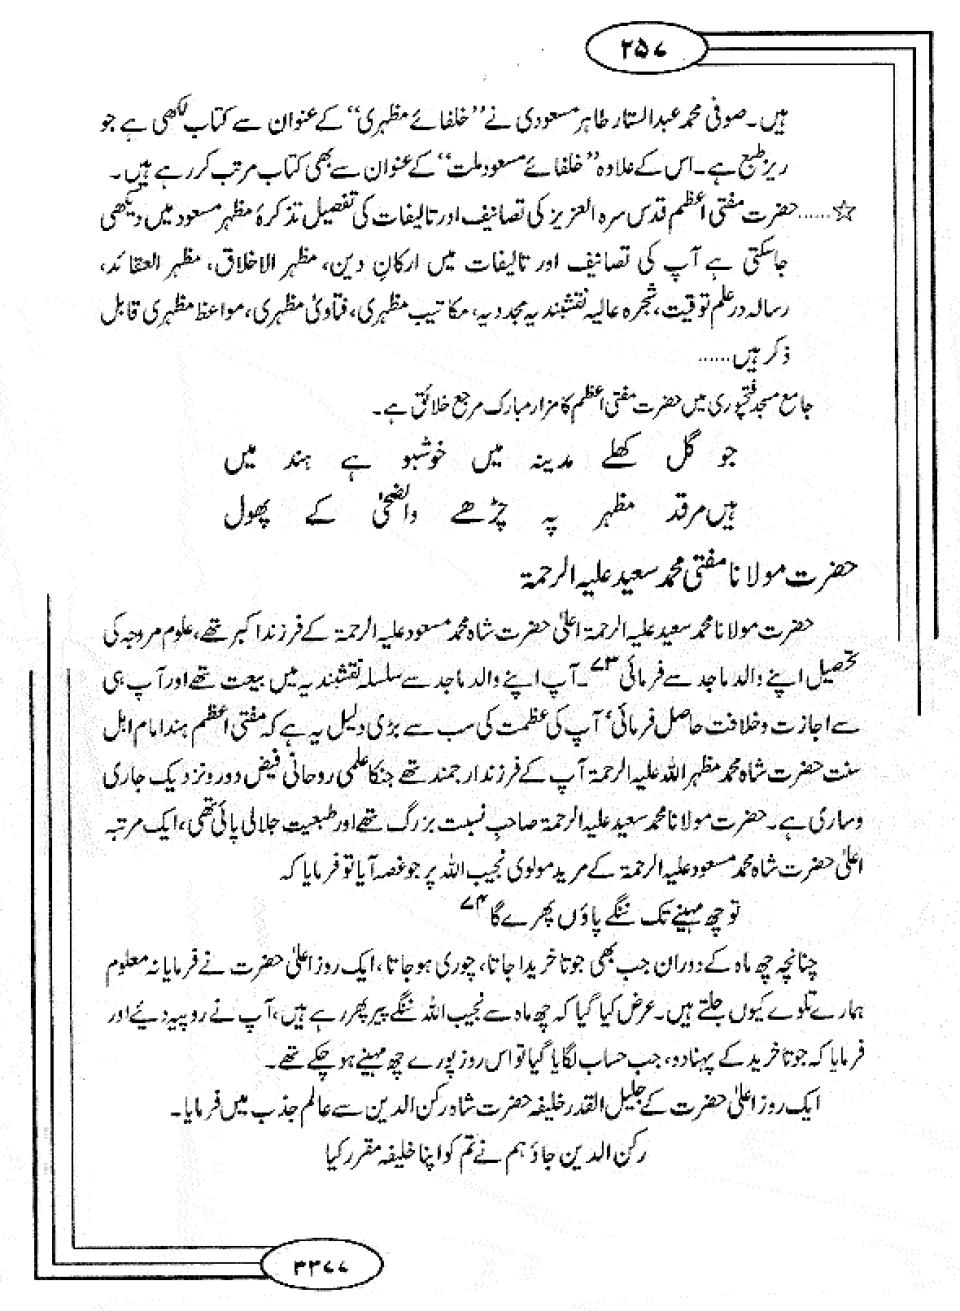 ۲۵۷
ہیں۔ صوفی محمد عبدالستار طاہر مسعودی نے ’’خلفائے مظہری‘‘ کے عنوان سے کتاب لکھی ہے جو
ریز طبع ہے۔ اس کے علاوہ ’’خلفائے مسعود ملت‘‘ کے عنوان سے بھی کتاب مرتب کر رہے ہیں۔
☆......حضرت مفتی اعظم قدس سرہ العزیز کی تصانیف اور تالیفات کی تفصیل تذکرۂ مظہر مسعود میں دیکھی
جاسکتی ہے آپ کی تصانیف اور تالیفات میں ارکانِ دین، مظہر الاخلاق، مظہر العقائد،
رسالہ در علم توقیت، شجرہ عالیہ نقشبندیہ مجددیہ، مکاتیب مظہری، فتاویٰ مظہری، مواعظ مظہری قابل
ذکر ہیں......
جامع مسجد فتحپوری میں حضرت مفتی اعظم کا مزار مبارک مرجع خلائق ہے۔
جو گل کھلے مدینہ میں خوشبو ہے ہند میں
ہیں مرقد مظہر پہ چڑھے والضحیٰ کے پھول
حضرت مولانا مفتی محمد سعید علیہ الرحمۃ
حضرت مولانا محمد سعید علیہ الرحمۃ اعلیٰ حضرت شاہ محمد مسعود علیہ الرحمۃ کے فرزند اکبر تھے، علوم مروجہ کی
تحصیل اپنے والد ماجد سے فرمائی ۷۳۔ آپ اپنے والد ماجد سے سلسلہ نقشبندیہ میں بیعت تھے اور آپ ہی
سے اجازت و خلافت حاصل فرمائی‘ آپ کی عظمت کی سب سے بڑی دلیل یہ ہے کہ مفتی اعظم ہند امام اہل
سنت حضرت شاہ محمد مظہر اللہ علیہ الرحمۃ آپ کے فرزند ارجمند تھے جنکا علمی روحانی فیض دور و نزدیک جاری
و ساری ہے۔ حضرت مولانا محمد سعید علیہ الرحمۃ صاحبِ نسبت بزرگ تھے اور طبعیت جلالی پائی تھی، ایک مرتبہ
اعلیٰ حضرت شاہ محمد مسعود علیہ الرحمۃ کے مرید مولوی نجیب اللہ پر جو غصہ آیا تو فرمایا کہ
تو چھ مہینے تک ننگے پاؤں پھرے گا ۷۴
چنانچہ چھ ماہ کے دوران جب بھی جوتا خریدا جاتا، چوری ہو جاتا، ایک روز اعلیٰ حضرت نے فرمایا نہ معلوم
ہمارے تلوے کیوں جلتے ہیں۔ عرض کیا گیا کہ چھ ماہ سے نجیب اللہ ننگے پیر پھر رہے ہیں، آپ نے روپیہ دئیے اور
فرمایا کہ جوتا خرید کے پہنا دو، جب حساب لگایا گیا تو اس روز پورے چھ مہینے ہو چکے تھے۔
ایک روز اعلیٰ حضرت کے جلیل القدر خلیفہ حضرت شاہ رکن الدین سے عالم جذب میں فرمایا۔
رکن الدین جاؤ ہم نے تم کو اپنا خلیفہ مقرر کیا
۳۳۷۷